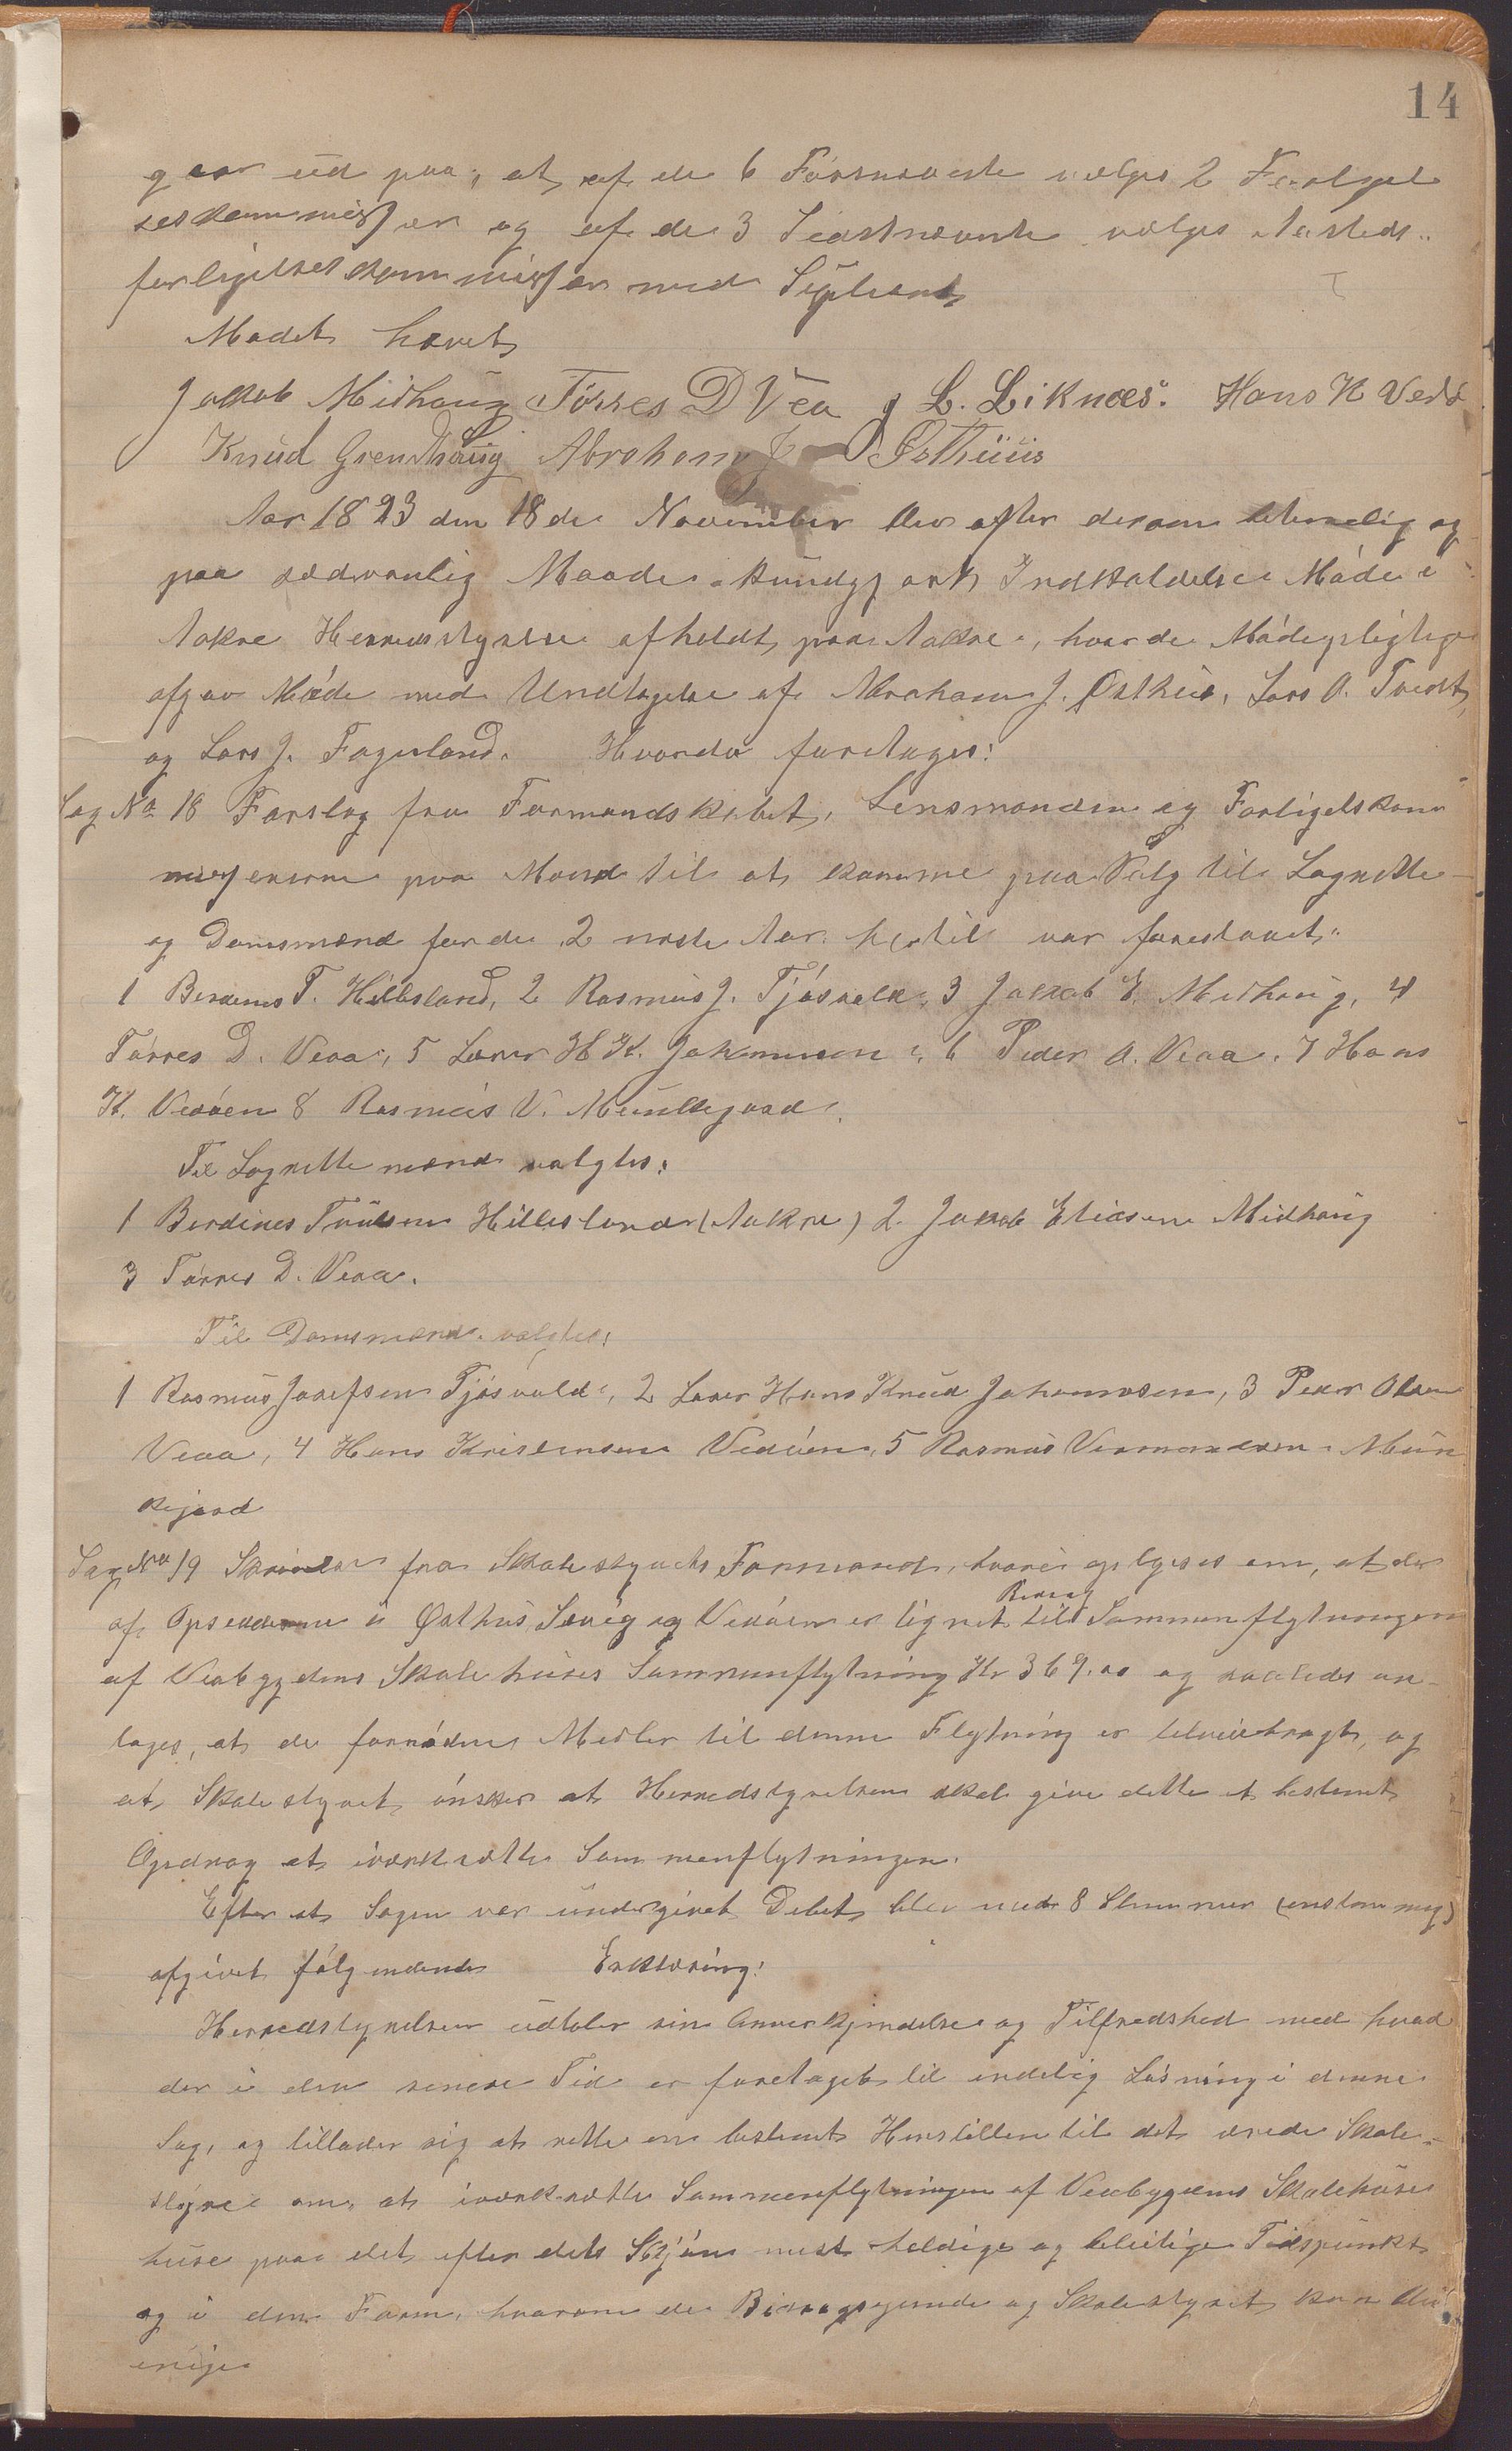 14
gaar ud paa, at af de 6 Førstnævnte vælges 2 Forligel
seskommissær og af de 3 Sidstnævnte vælges Varsteds
forligelseskommissær med Supleant
Mødet hævet
Jakob Midhaug Tørres D Vea J L. Liknæs. Hans K Vedø
Knud Grindhaug Abraham J Østhuus
Aar 1893 den 18de November blev efter derom betimelig og
paa sædvanlig Maade kundgjort Indkaldelse Møde i
Aakre Herredsstyrelse afholdt paa Aakre, hvor de Mødepligtige
afgav Møde med Undtagelse af Abraham J. Østhus, Lars A. Tvedt,
og Lars J. Fagerland. Hvorda foretages:
Sag No 18 Forslag fra Formandskabet, Lensmanden og Forligelskom
missærerne paa Mænd til at komme paa Valg til Lagrette
og Domsmænd for de 2 næste Aar hertil var forestaaet:
1 Berdines T. Hillesland, 2 Rasmus J. Tjøsvold, 3 Jakob E. Midhaug, 4
Tørres D. Veaa, 5 Lærer H K. Johannesen, 6 Peder O. Veaa, 7 Hans
K. Vedøen 8 Rasmus V. Munkejord.
Til Lagrettemænd valgtes:
1 Berdines Truulsen Hillesland (Aakre) 2 Jakob Eliasen Midhaug
3 Tørres D. Veaa.
Til Domsmænd valgtes:
1 Rasmus Josefsen Tjøsvold, 2 Lærer Hans Knud Johannesen, 3 Peder Olsen
Veaa, 4 Hans Kristensen Vedøen, 5 Rasmus Vermundsen Mun
kejord
Sag No 19 Skrivelse fra Skolestyrets Formand, hvori oplyses om, at der
Bidrag
af Opsidderne i Østhus, Sævig og Vedøen er lignet til Sammenflytningen
af Veabygdens Skolehuses Sammenflytning Kr 369.00 og saaledes an-
tages, at de fornødne Midler til denne Flytning er tilveiebragt, og
at Skolestyret ønsker at Herredstyrelsen skal give dette et bestemt
Opdrag at iværksætte Sammenflytningen.
Efter at Sagen var undergivet Debat blev med 8 Stemmer (enstemmig)
afgivet følgendende Erklæring:
Herredstyrelsen udtaler sin Anerkjendelse og Tilfredshed med hvad
der i den senere Tid er foretaget til endelig Løsning i denne
Sag, og tillader sig at rette en bestemt Henstillen til det ærede Skole-
styre om at iværksætte Sammenflytningen af Veabygdens Skolehuse
huse paa det efter dets Skjøn mest heldige og beleilige Tidspunkt
og i den Form, hvorom de Bidragsydende og Skolestyret kan blive
enige